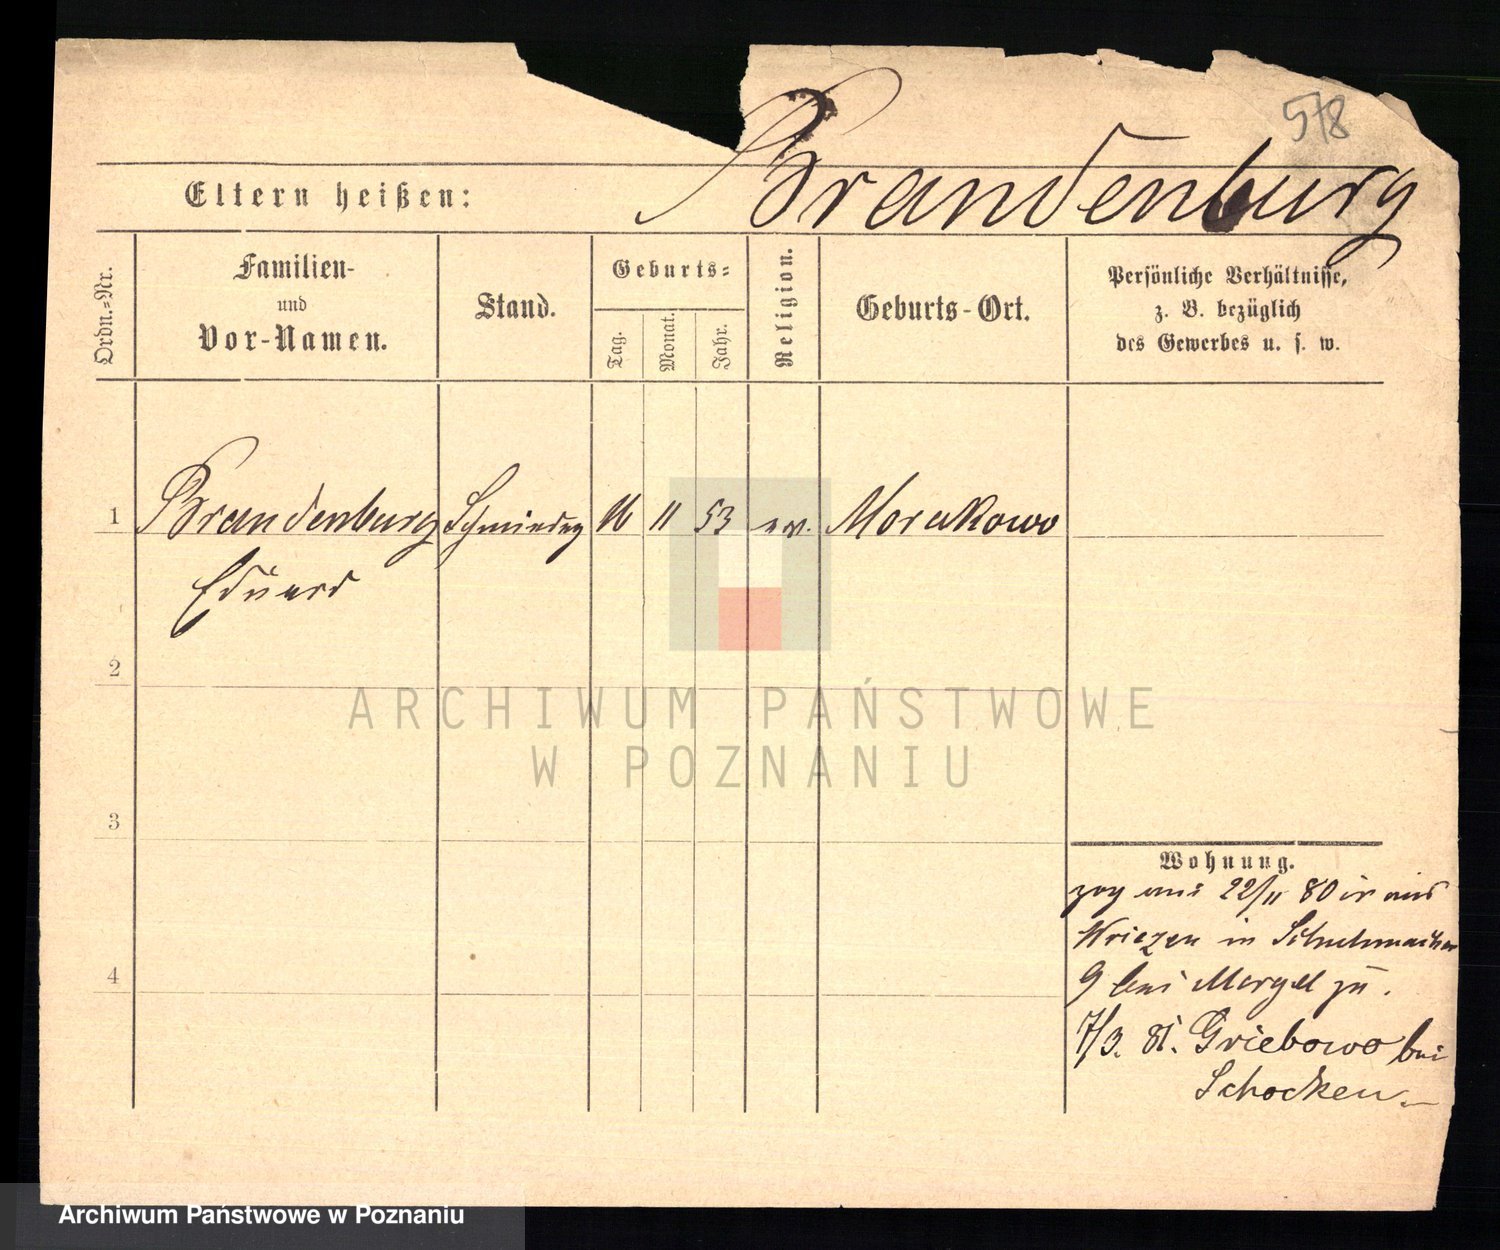 578
Brandenburg
Eltern heißen:
Ordn.-Nr.
Familien-
und
Vor-Namen.
Stand.
Geburts-
Tag.
Monat.
Jahr.
Religion.
Geburts-Ort.
Persönliche Verhältnisse,
z. B. bezüglich
des Gewerbes u. s. w.
1 Brandenburg 16 11 53 ev. Morakowo
Eduard
2
3
4
Wohnung.
zog am 22/11 80 aus
Wriezen in Schuhmacher
9 bei Mergel zu.
7/3. 81. Griebowo bei
Schocken.
ARCHIWUM PAŃSTWOWE
W POZNANIU
Archiwum Państwowe w Poznaniu